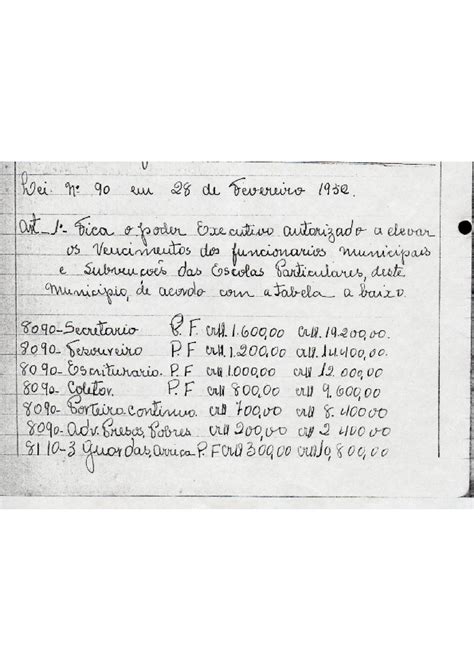 Lei Nº 90 em 28 de Fevereiro 1952.
Art. 1º- Fica o poder Executivo autorizado a elevar
os Vencimentos dos funcionarios municipais
e Subvenções das Escolas Particulares, deste
Municipio, de acordo com a Tabela a baixo.
8090-Secretario P.F cr$ 1.600,00 cr$ 19.200,00.
8090-Tezoureiro P.F cr$ 1.200,00 cr$ 14.400,00.
8090-Escriturario. P.F cr$ 1.000,00 cr$ 12.000,00
8090-Coletor. P.F cr$ 800,00 cr$ 9.600,00
8090-Porteiro Continuo. cr$ 700,00 cr$ 8.400,00
8090-Adv. Presos Pobres cr$ 200,00 cr$ 2.400,00
8110-3 Guardas, P.F cr$ 300,00 cr$ 10,800,00